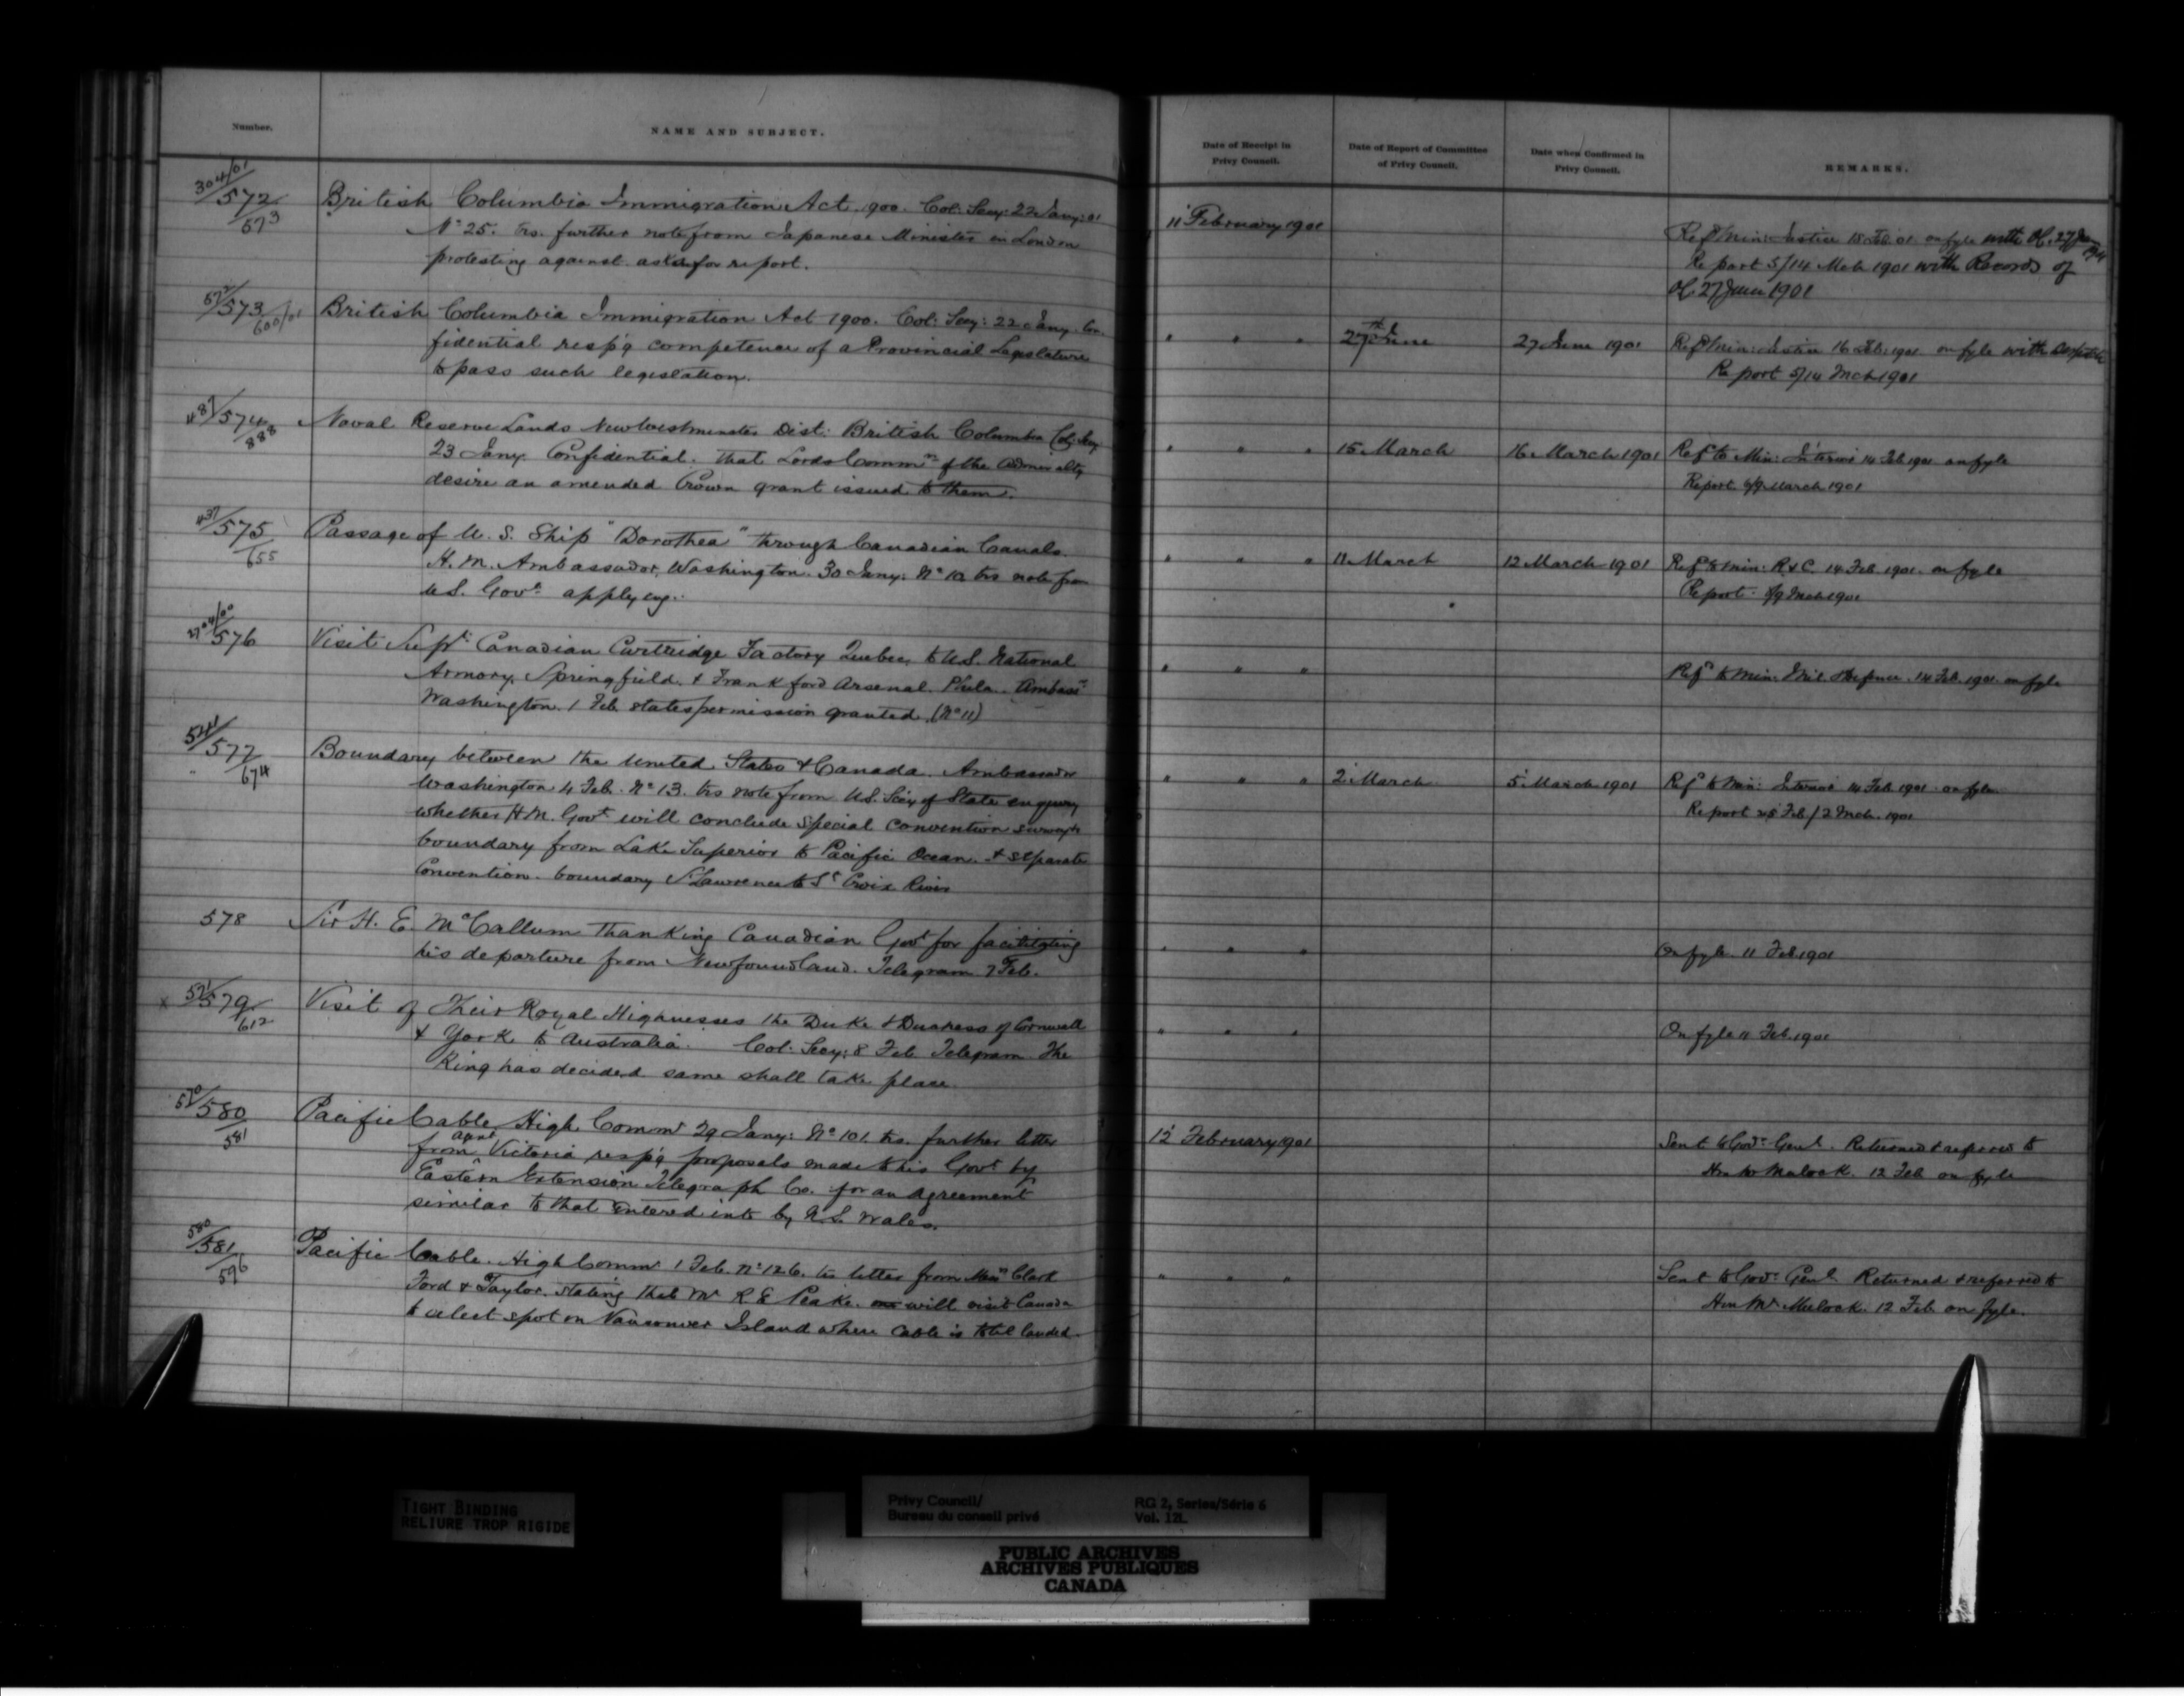 Number.
NAME AND SUBJECT.
Date of Receipt in
Privy Council.
Date of Report of Committee
of Privy Council.
Date when Confirmed in
Privy Council.
REMARKS.
304/01
572
573
British Columbia Immigration Act, 1900. Col: Secy: 22 Jany: 01
No 25. trs. further note from Japanese Minister in London
protesting against. asks for report.
11 February 1901
Refd Min: Justice 15 Feb 01. on fyle with OC. 27 June
Report 5/14 Mch 1901 with Records of
OC 27 June 1901
572/573
600/01
British Columbia Immigration Act 1900. Col: Secy: 22 Jany. Con-
fidential resp'g competence of a Provincial Legislature
to pass such legislation.
" " "
27th June
27 June 1901
Refd Min: Justice 16 Feb: 1901 on fyle with
Report 5/14 Mch 1901
487/574
888
Naval Reserve Lands New Westminster Dist: British Columbia Col: Secy
23 Jany. Confidential. that Lords Commrs of the Admiralty
desire an amended Crown grant issued to them.
" " "
15 March
16 March 1901
Refd to Min: Interior 14 Feb 1901 on fyle
Report 6/9 March 1901
437/575
655
Passage of U. S. Ship "Dorothea" through Canadian Canals.
H. M. Ambassador, Washington. 30 Jany: No 10 trs note from
U.S. Govt applying.
" " "
11 March
12 March 1901
Refd to Min: R & C. 14 Feb 1901. on fyle
Report 8/9 Mch 1901
2704/00
576
Visit Supt. Canadian Cartridge Factory Quebec, to U.S. National
Armory, Springfield. & Frankford Arsenal. Phila. Ambassr
Washington. 1 Feb states permission granted. (No 11)
" " "
Refd to Min: Mil. & Defence. 14 Feb. 1901. on fyle
541/577
674
Boundary between the United States & Canada. Ambassador
Washington 4 Feb. No 13. trs note from U.S. Secy of State enquiry
whether H.M. Govt will conclude special convention
boundary from Lake Superior to Pacific Ocean. & separate
Convention. boundary St Lawrence to St Croix River
" " "
2 March
5 March 1901
Refd to Min: Interior 14 Feb 1901 on fyle.
Report 25 Feb / 2 Mch. 1901
578
Sir H. E. McCallum thanking Canadian Govt for facilitating
his departure from Newfoundland. Telegram 7 Feb.
" " "
On fyle. 11 Feb. 1901
x 521/579
612
Visit of Their Royal Highnesses the Duke & Duchess of Cornwall
& York to Australia. Col: Secy: 8 Feb Telegram The
King has decided same shall take place.
" " "
On fyle 11 Feb. 1901
570/580
581
Pacific Cable. High Commr 29 Jany: No 101. trs. further letter
from Agent Victoria resp'g proposals made to his Govt by
Eastern Extension Telegraph Co. for an Agreement
similar to that entered into by N.S. Wales.
12 February 1901
Sent to Govr: Genl. Returned & referred to
Hon W Mulock. 12 Feb on fyle
580/581
596
Pacific Cable. High Commr 1 Feb. No 126. trs letter from Messrs Clark
Ford & Taylor. stating that Mr R E Peake. will visit Canada
to select spot on Vancouver Island where cable is to be landed.
" " "
Sent to Govr: Genl Returned & referred to
Hon Mr Mulock. 12 Feb on fyle.
TIGHT BINDING
RELIURE TROP RIGIDE
Privy Council/
Bureau du conseil privé
RG 2, Series/Série 6
Vol. 121.
PUBLIC ARCHIVES
ARCHIVES PUBLIQUES
CANADA